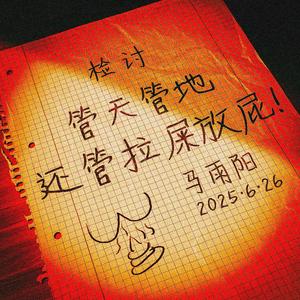 检讨
管天管地
还管拉屎放屁!
马雨阳
2025·6·26